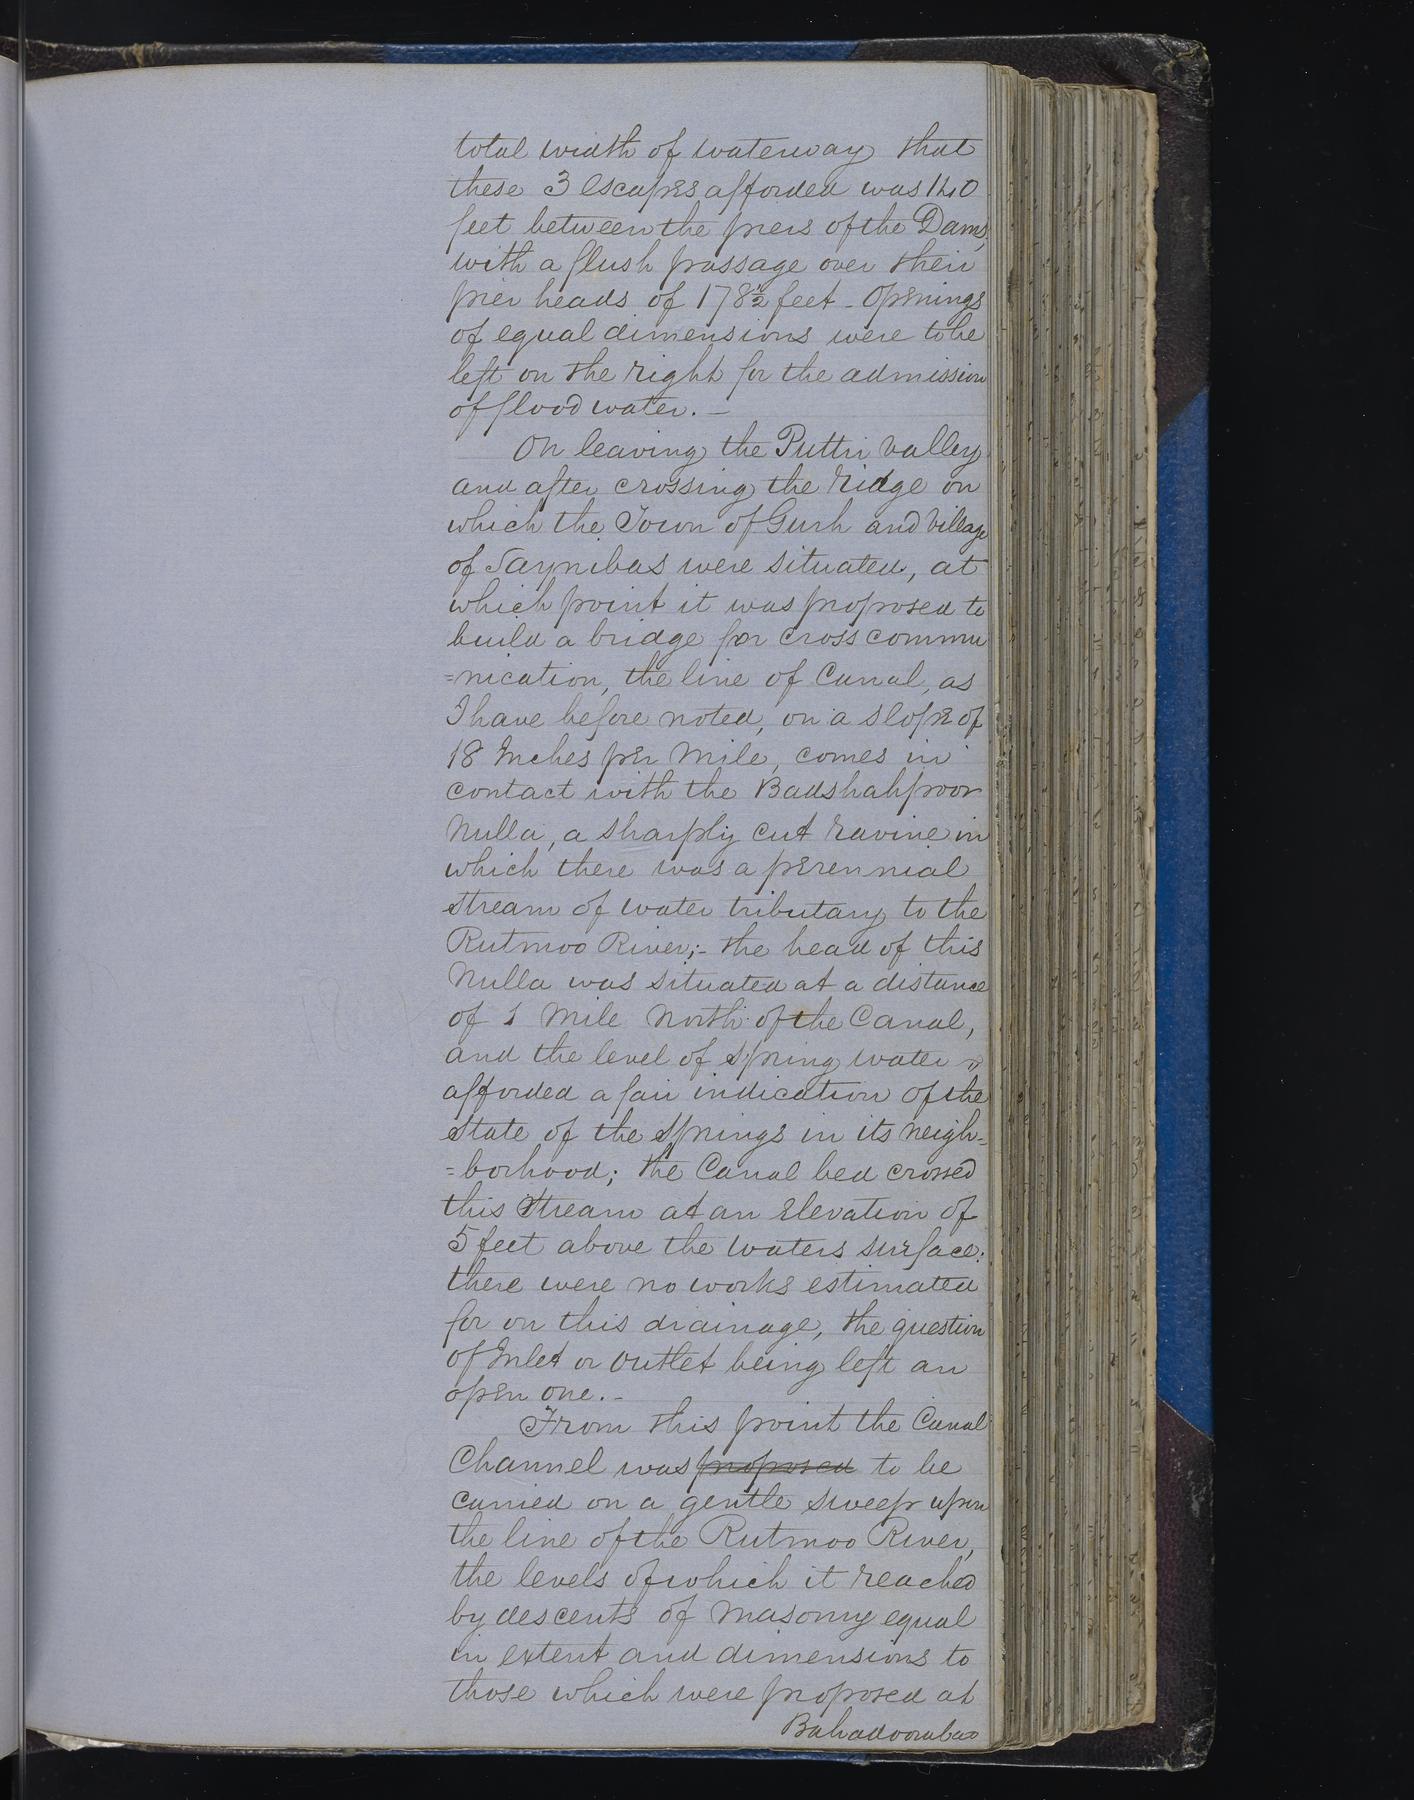 total width of waterway that
these 3 escapes afforded was 140
feet between the piers of the Dams,
with a flush passage over their
pier heads of 178½ feet - Openings
of equal dimensions were to be
left on the right for the admission
of flood water. —
On leaving the Puttri Valley
and after crossing the ridge on
which the Town of Gurh and Village
of Saynibas were situated, at
which point it was proposed to
build a bridge for cross commu
=nication, the line of Canal, as
I have before noted, on a slope of
18 Inches per Mile, comes in
contact with the Badshahpoor
Nulla, a sharply cut ravine in
which there was a perennial
stream of water tributary to the
Rutmoo River;- the head of this
Nulla was situated at a distance
of 1 Mile North of the Canal,
and the level of Spring water
afforded a fair indication of the
state of the Springs in its neigh-
=borhood; the Canal bed crossed
this stream at an elevation of
5 feet above the waters surface;
there were no works estimated
for on this drainage, the question
of Inlet or outlet being left an
open one. -
From this point the Canal
Channel was proposed to be
carried on a gentle sweep upon
the line of the Rutmoo River,
the levels of which it reached
by descents of Masonry equal
in extent and dimensions to
those which were proposed at
Bahadoorabad